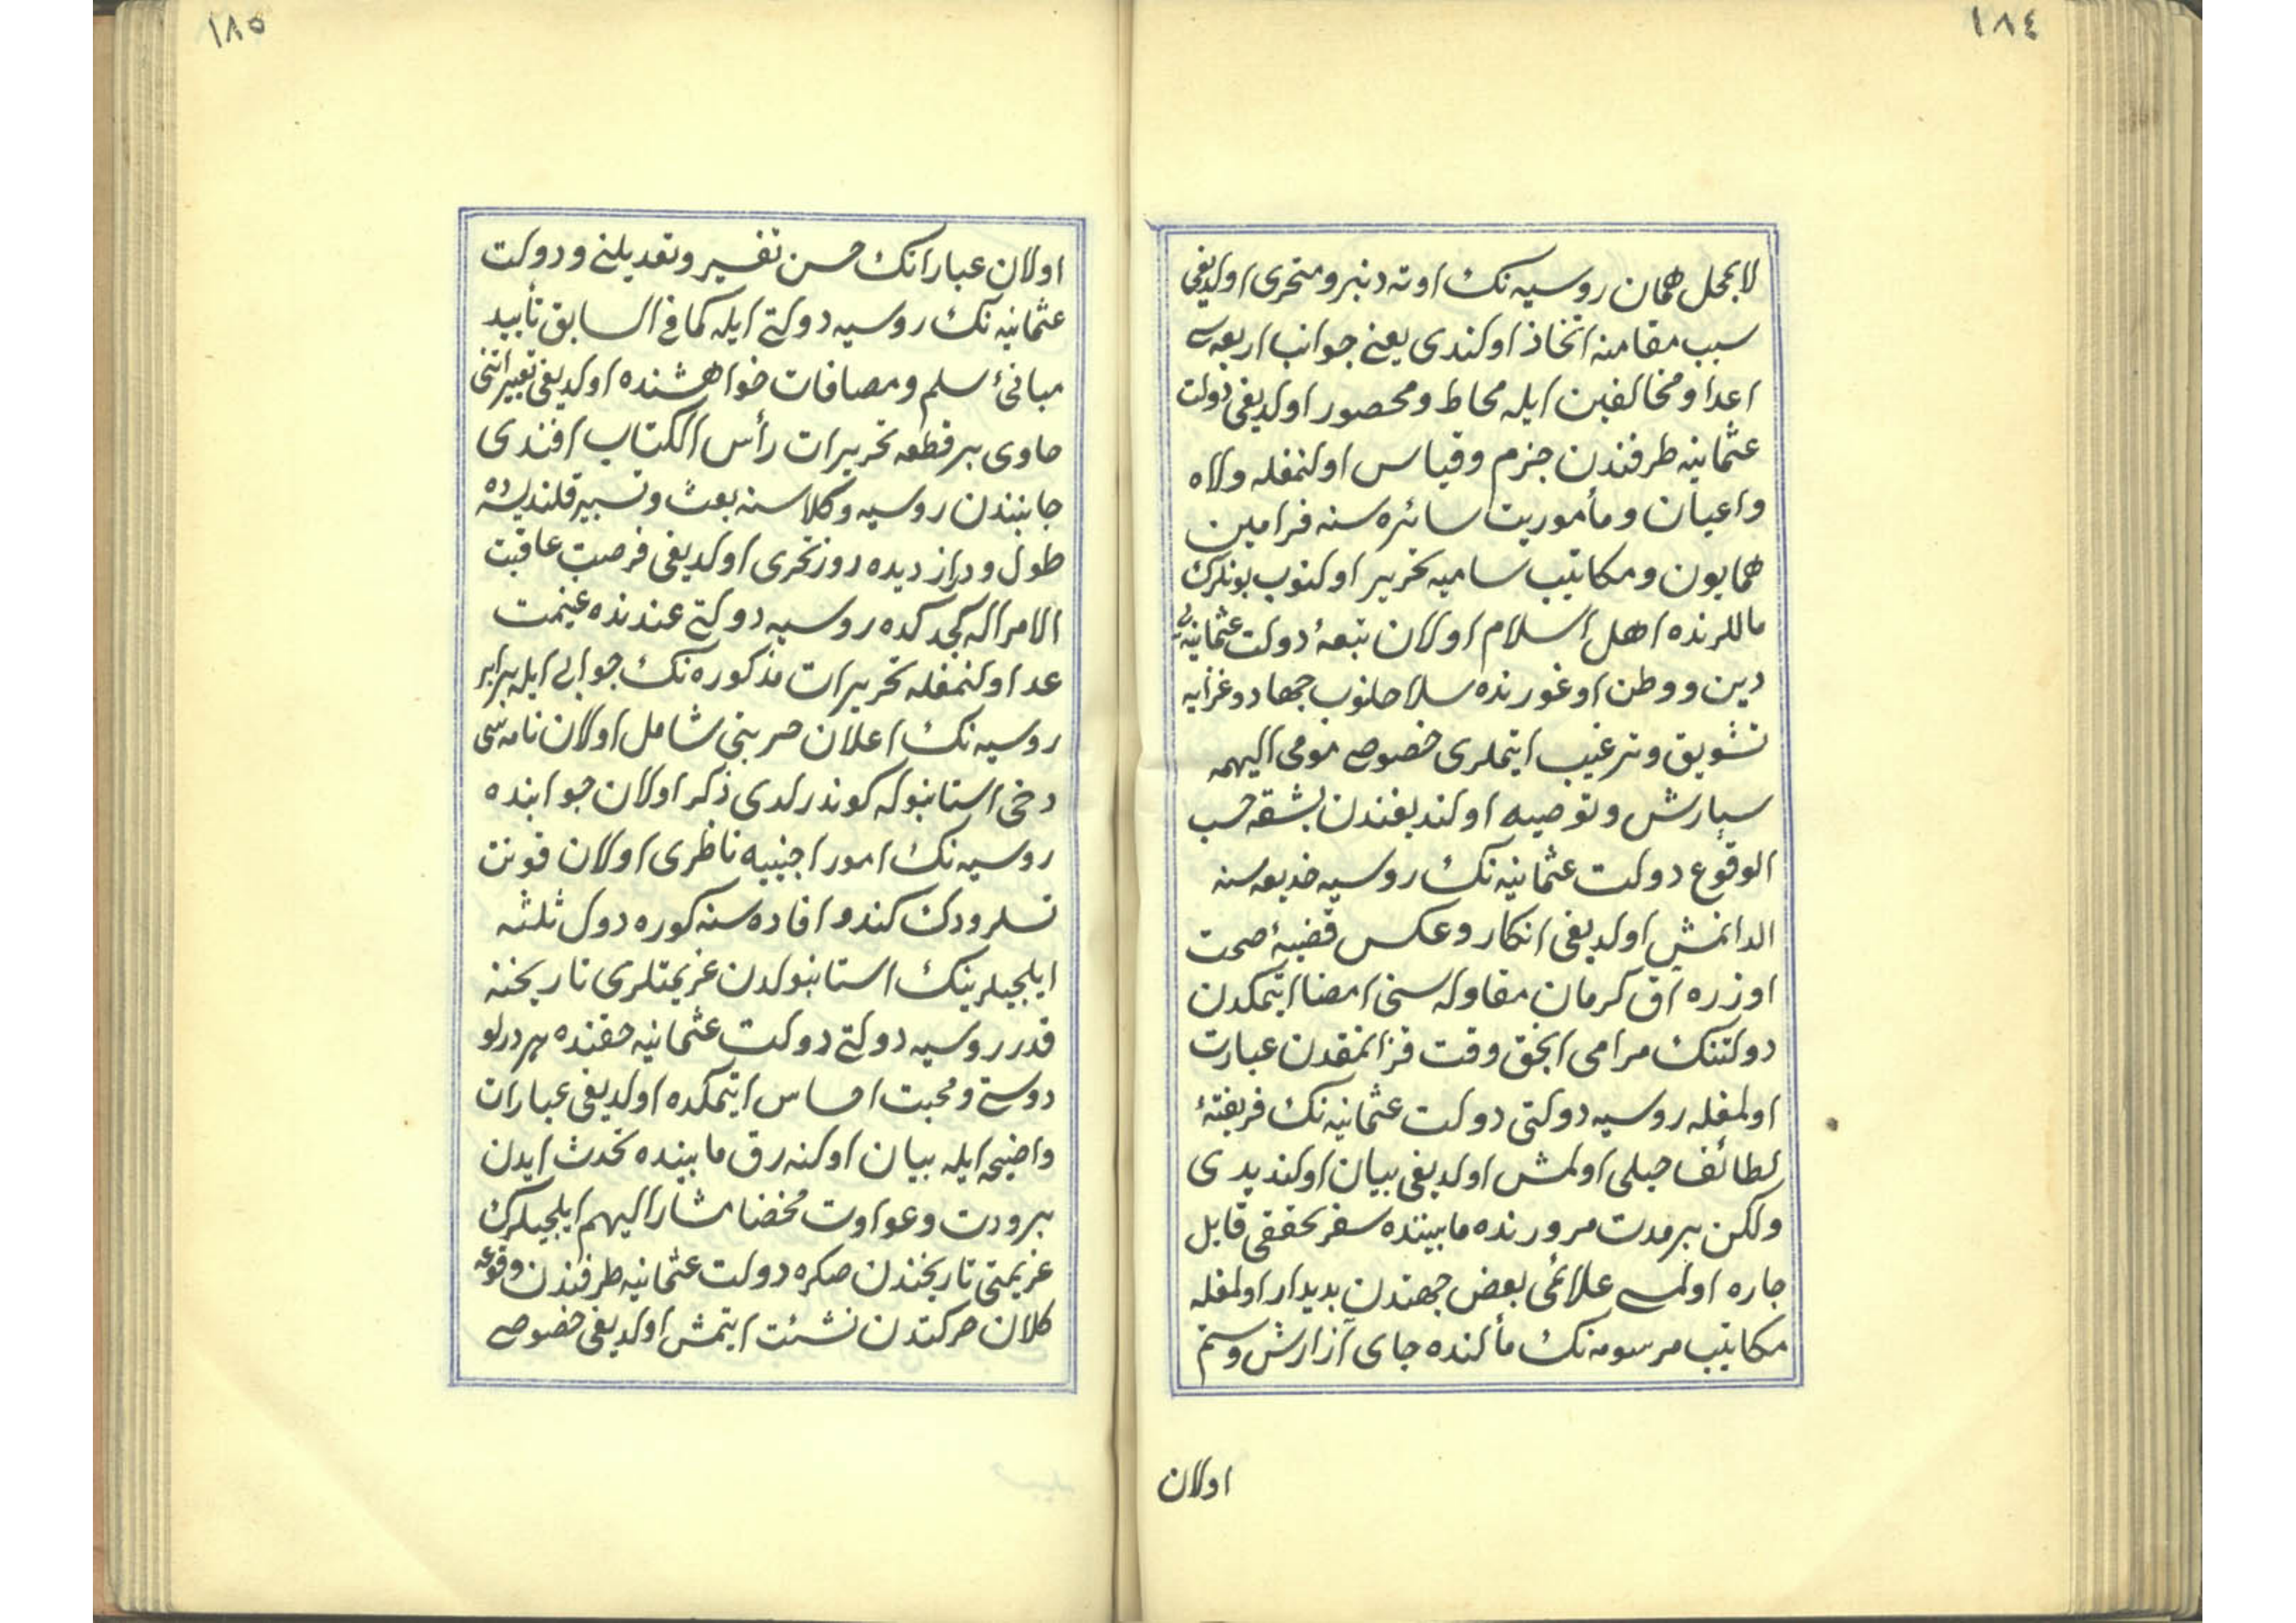 ١٨٤
لابمحل همان روسیه نك اوته دنبرو متحری اولدیغی
سبب مقامنه اتخاذ اولندی یعنی جوانب اربعه سی
اعدا و مخالفین ایله محاط و محصور اولدیغی دولت
عثمانیه طرفندن جزم و قیاس اولنمغله ولاه
واعیان و مأمورین سائره سنه فرامین
همایون و مکاتیب سامیه تحریر اولنوب بونلرك
ماللرنده اهل اسلام اولان تبعهٔ دولت عثمانیه یی
دین و وطن اوغورنده سلاحلنوب جهاد و غزایه
تشویق و ترغیب ایتملری خصوصی مومی الیهمه
سپارش و توصیه اولندیغندن بشقه حسب
الوقوع دولت عثمانیه نك روسیه خدیعه سنه
الدانمش اولدیغی انکار و عکس قضیهٔ صحت
اوزره آق کرمان مقاوله سنی امضا ایتمکدن
دولتنك مرامی انجق وقت قزانمقدن عبارت
اولمغله روسیه دولتی دولت عثمانیه نك فریفتهٔ
لطائف حیلی اولمش اولدیغی بیان اولندیدی
ولکن بر مدت مرورنده مابیننده سفر تحققی قابل
چاره اولمسی علائمی بعض جهتدن بدیدار اولمغله
مکاتیب مرسومه نك مألنده جای آزارش و ستم
اولان
١٨٥
اولان عباراتك حسن تفسیر و تعدیلنی و دولت
عثمانیه نك روسیه دولتی ایله کما فی السابق تأیید
مبانیٔ سلم و مصافات خواهشنده اولدیغی تعبیراتنی
حاوی بر قطعه تحریرات رأس الکتاب افندی
جانبندن روسیه وکلاسنه بعث و تسییر قلندیسه ده
طول و دراز دیده دوز تحری اولدیغی فرصت عاقبت
الامر اله کجدکده روسیه دولتی عندنده غنیمت
عد اولنمغله تحریرات مذکوره نك جوابی ایله برابر
روسیه نك اعلان حربنی شامل اولان نامه سی
دخی استانبوله کوندرلدی ذکر اولان جوابنده
روسیه نك امور اجنبیه ناظری اولان قونت
نسلرودك کندو افاده سنه کوره دول ثلثه
ایلچیلرینك استانبولدن عزیمتلری تاریخنه
قدر روسیه دولتی دولت عثمانیه حقنده هر درلو
دوستی و محبت احساس ایتمکده اولدیغی عبارات
واضحه ایله بیان اولنه رق مابینده تحدث ایدن
برودت و عداوت محضا مشار الیهم ایلچیلرك
عزیمتی تاریخندن صکره دولت عثمانیه طرفندن وقوعه
کلان حرکتدن نشئت ایتمش اولدیغی خصوصی